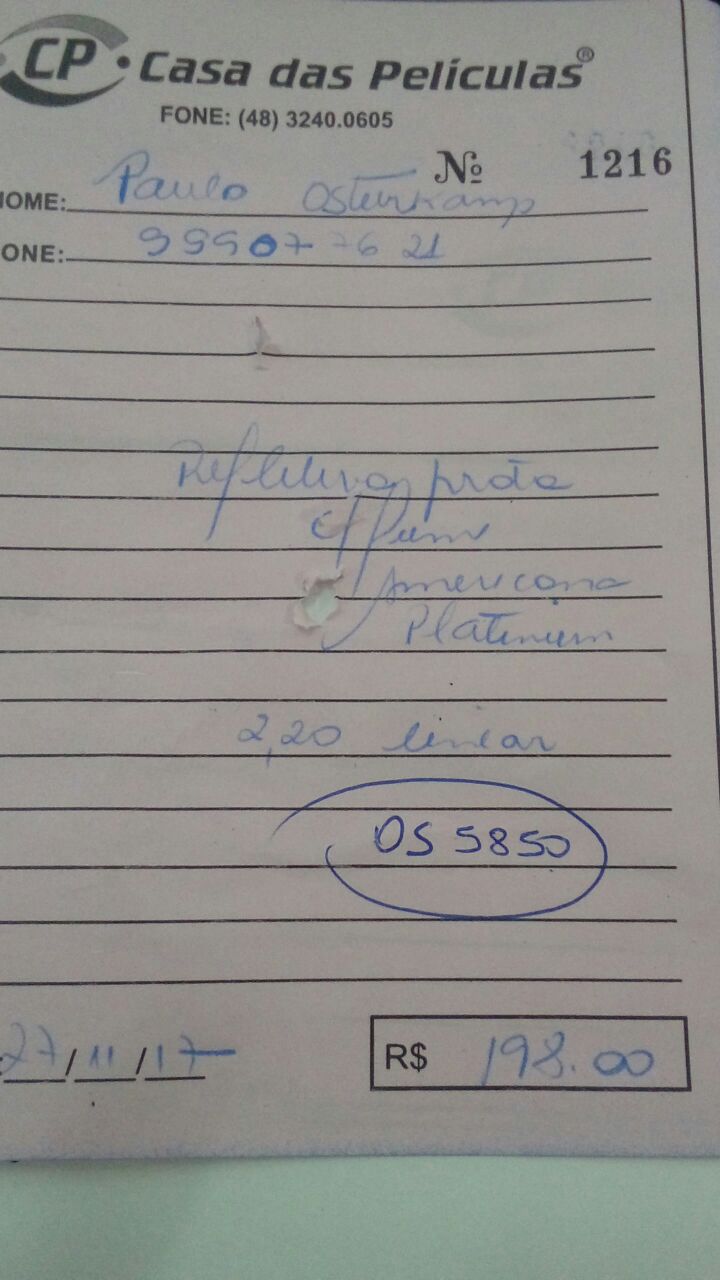 CP • Casa das Películas®
FONE: (48) 3240.0605
Nº 1216
NOME: Paulo Osterkamp
ONE: 999077621
Refletiva prata
americana
Platinium
2,20 linear
OS 5850
27/11/17
R$ 198.00